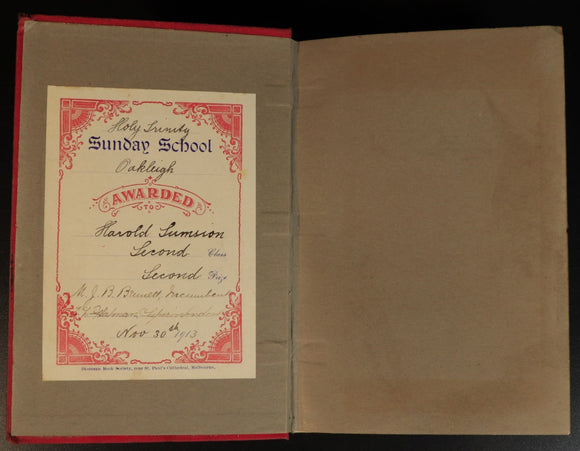 Holy Trinity
Sunday School
Oakleigh
AWARDED
TO
Harold Sumsion
Second Class
Second Prize
M. J. B. Bennett, Incumbent
Superintendent
Nov 30th 1913
Diocesan Book Society, near St. Paul's Cathedral, Melbourne.